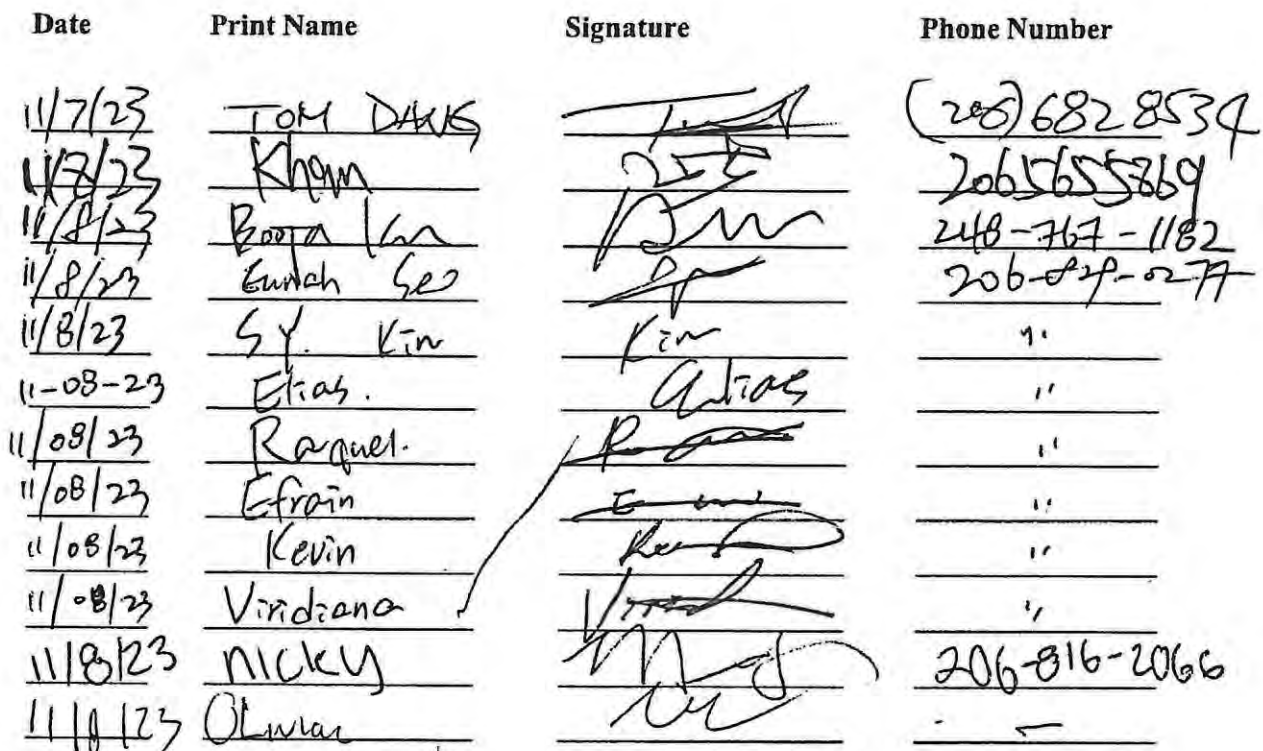 Date Print Name Signature Phone Number
11/7/23 TOM DANG (206) 682 8534
11/8/23 Kham 2065655869
11/8/23 248-767-1182
11/8/23 Eunah Seo 206-829-0277
11/8/23 S.Y. Kim Kim "
11-08-23 Elias. Elias "
11/08/23 Raquel. "
11/08/23 Efrain "
11/08/23 Kevin "
11/08/23 Viridiana "
11/8/23 NICKY 206-816-2066
11/8/23 Olivia -